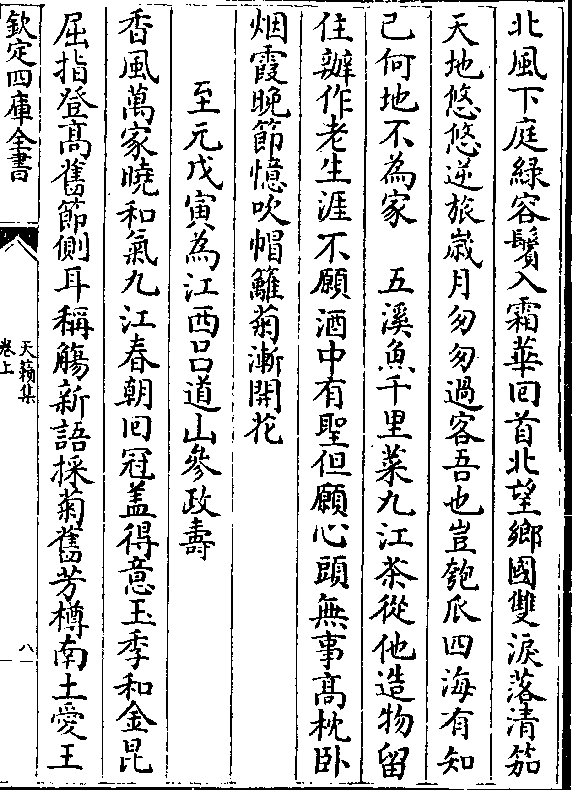 北風下庭綠容鬢入霜華回首北望鄉國雙淚落清笳
天地悠悠逆旅嵗月匆匆過客吾也豈匏瓜四海有知
己何地不為家　五溪魚千里菜九江茶從他造物留
住辦作老生涯不願酒中有聖但願心頭無事高枕卧
烟霞晚節憶吹帽籬菊漸開花
至元戊寅為江西吕道山參政壽
香風萬家曉和氣九江春朝回冠盖得意玉季和金昆
屈指登高舊節側耳稱觴新語採菊舊芳樽南土愛王
欽定四庫全書
天籟集
卷上
八